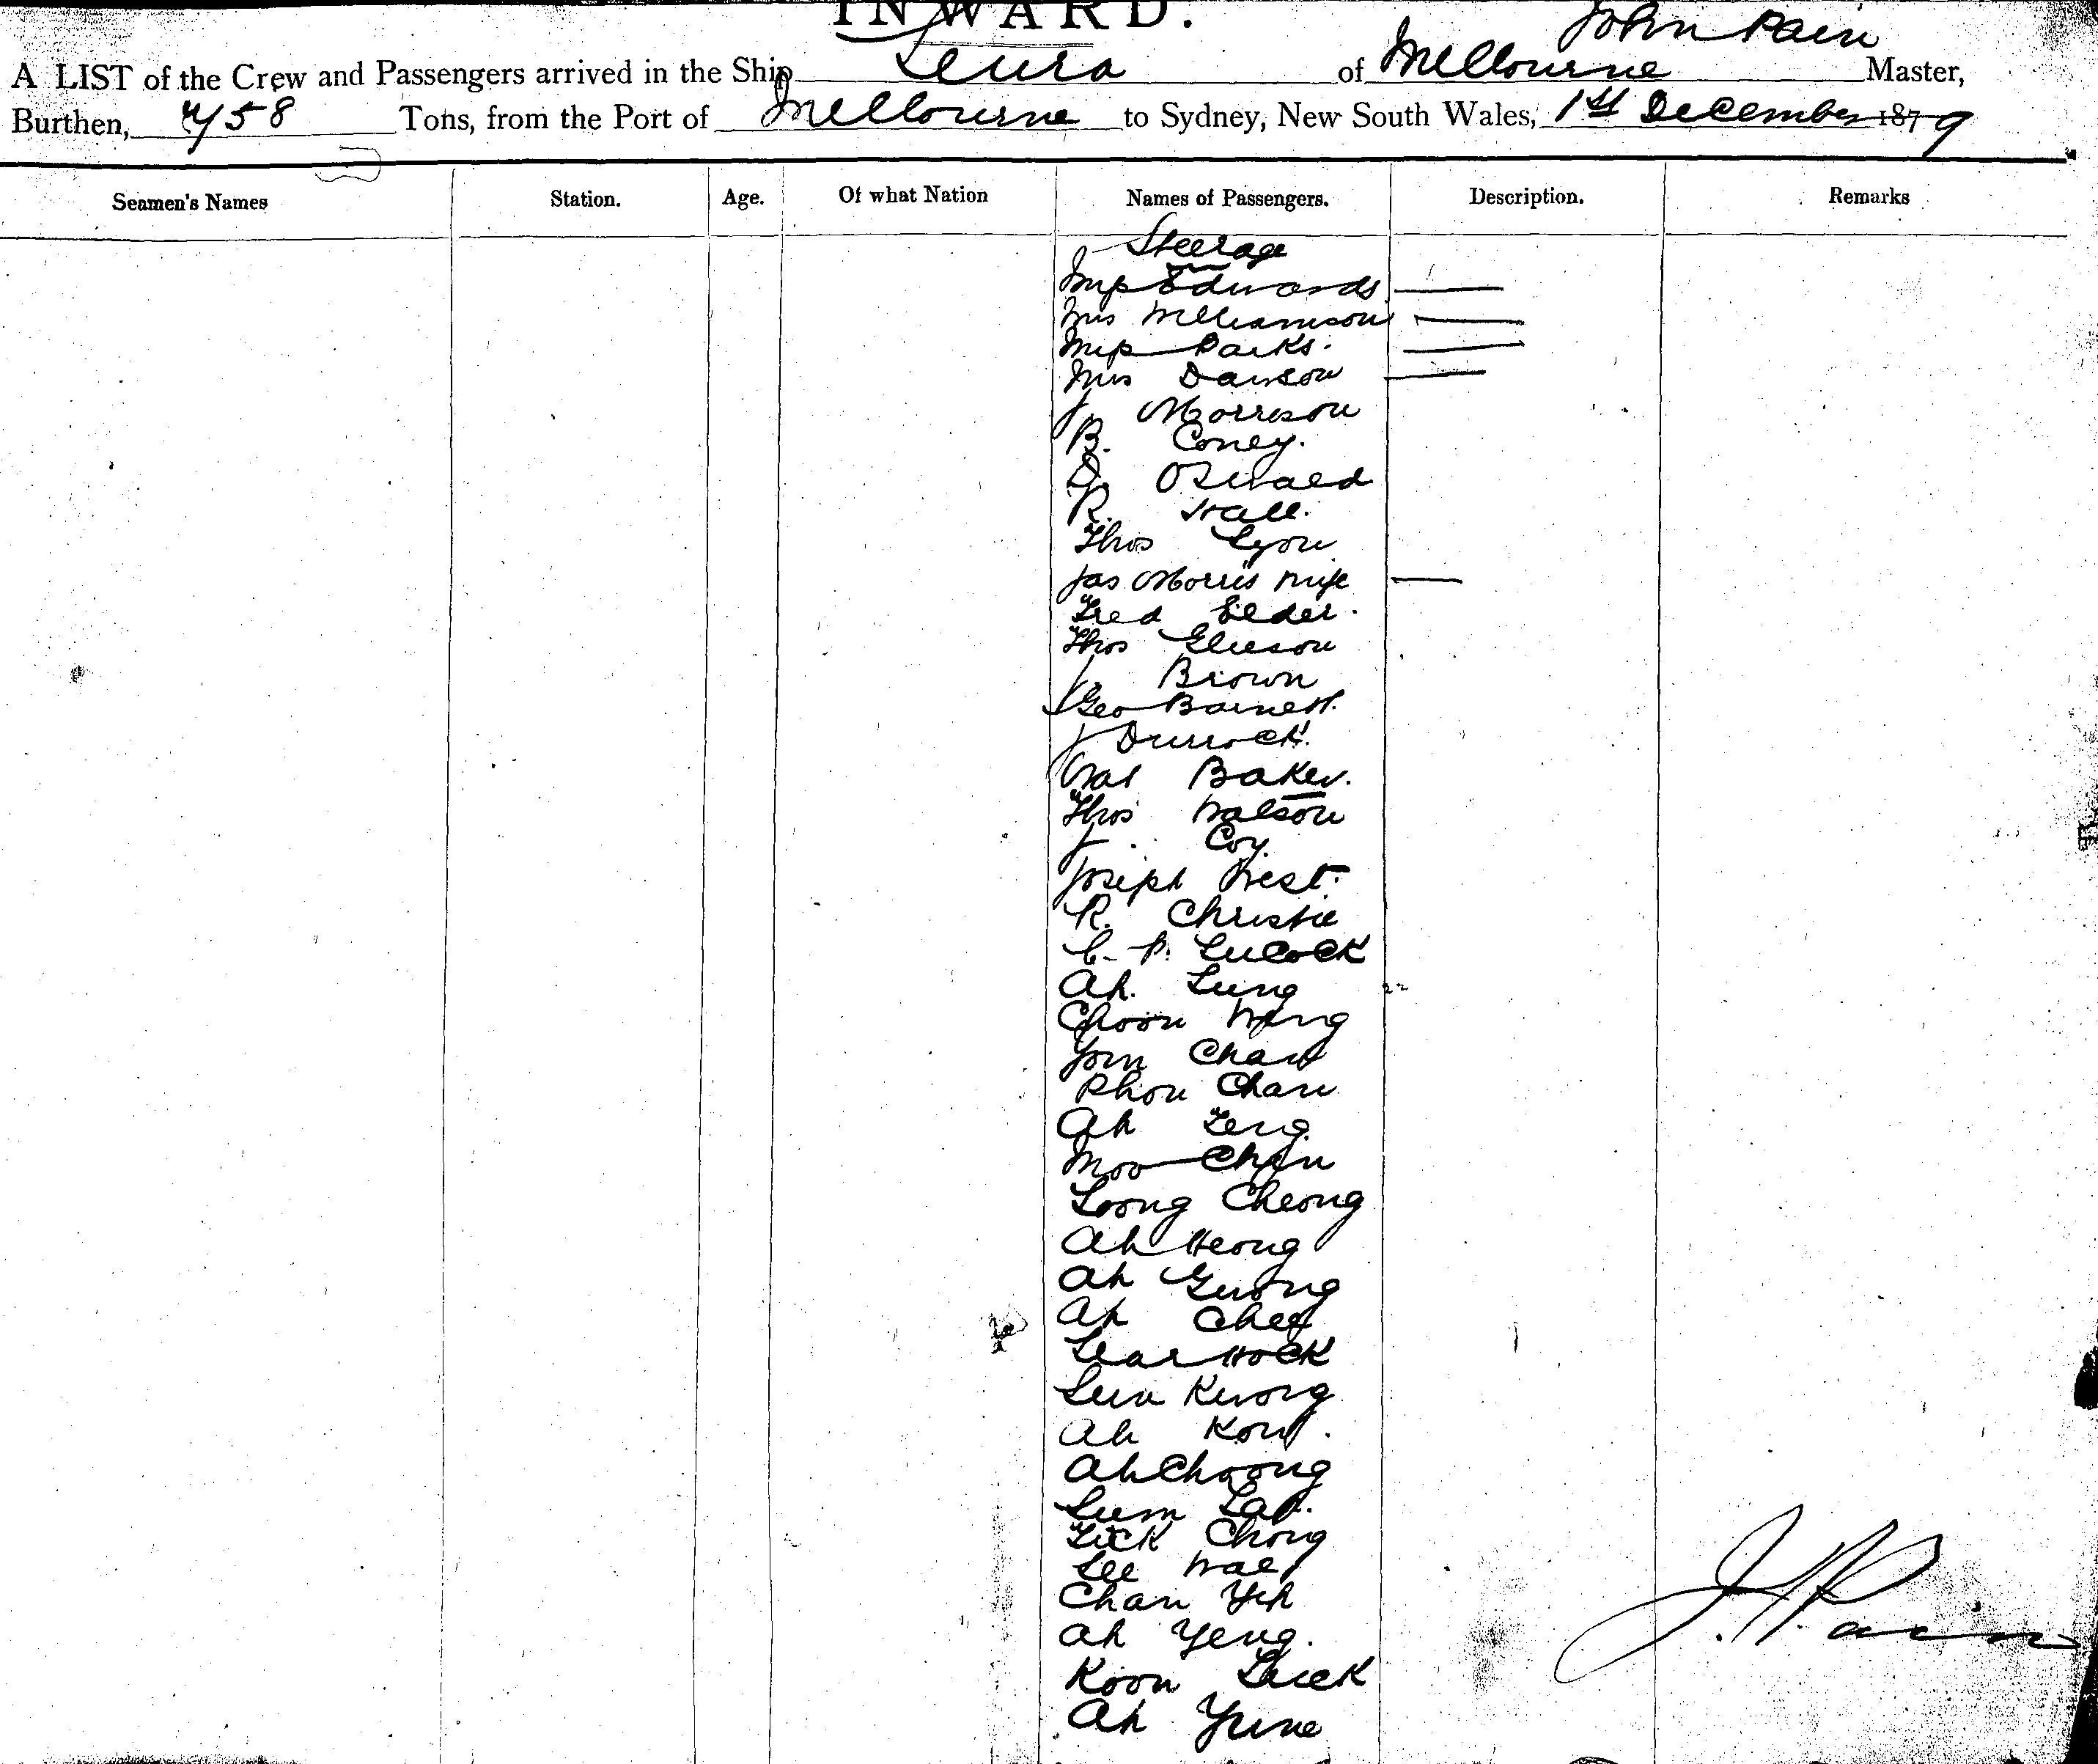 INWARD.
A LIST of the Crew and Passengers arrived in the Ship Leura of Melbourne John Pain Master,
Burthen, 458 Tons, from the Port of Melbourne to Sydney, New South Wales, 1st December 1879
Seamen's Names Station. Age. Of what Nation Names of Passengers. Description. Remarks
Steerage
Miss Edwards
Mrs Williamson
Miss Parks
Mrs Dawson
J. Morrison
B. Coney.
D. Oswald
R. Hall.
Thos Lyon
Jas Morris Wife
Fred Elder.
Thos Gleeson
J. Brown
Geo Barnett.
J Durrock.
Baker.
Thos Watson
J. Coy.
Joseph West.
R. Christie
C. P. Lucock
Ah. Lung
Choon Wing
Chaw
Phou Chan
Ah
Moo Chin
Loong Cheong
Ah Heong
Ah
Ah Chee
Lear Hock
Kwong
Ah Kow.
Ah Choong
Lum
Chong
See Wae
Chan Yih
Ah Yeng.
Koon
Ah Yune
J. Pain